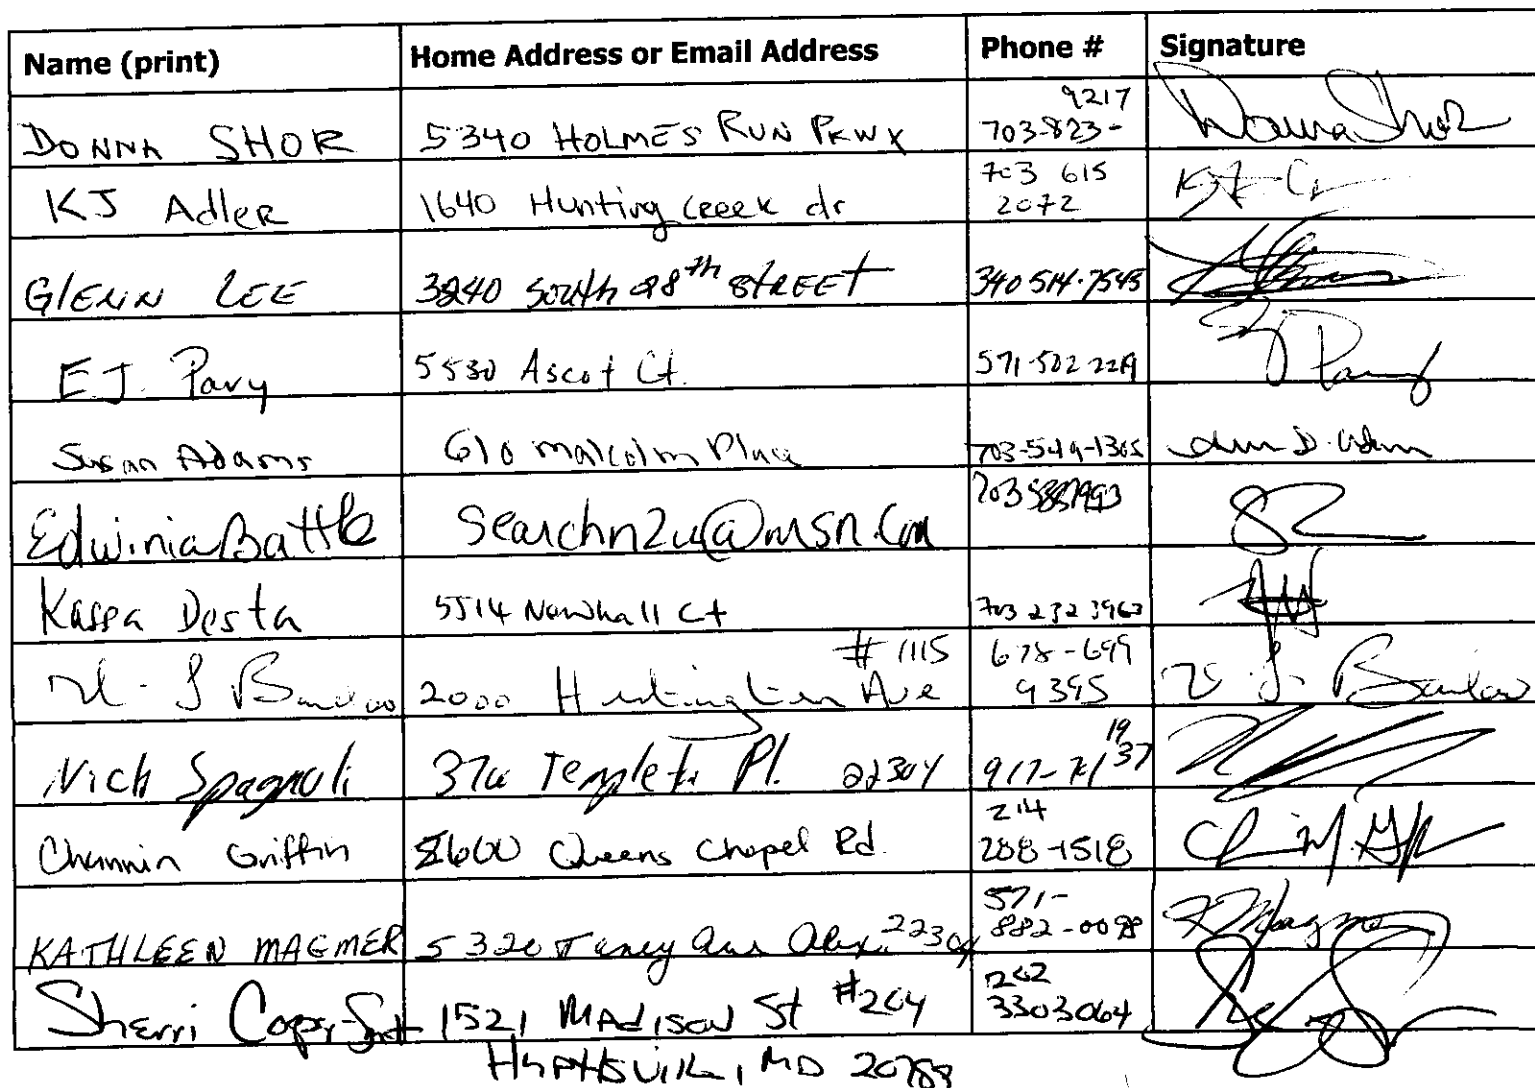 Name (print) Home Address or Email Address Phone # Signature
DONNA SHOR 5340 HOLMES RUN PKWY 703-823-9217 Donna Shor
KJ Adler 1640 Hunting Creek dr 703 615 2072
GLENN LEE 3840 South 28th STREET 340 514-7545
EJ. Pavy 5530 Ascot Ct. 571-502-2219
Susan Adams 610 Malcolm Place 703-549-1365
Edwinia Battle Searchn2u@msn.com
Kassa Desta 5514 Newhall Ct 703 232 3963
2000 Huntington Ave #1115 678-699 9395
Nich Spagnoli Pl. 22304
Channin Griffin Queens Chapel Rd. 214 288-1518
KATHLEEN MAGMER 5320 Taney Ave Alex. 22304 571-882-0098
Sherri 1521 MADISON St #204 202 3303064
MD